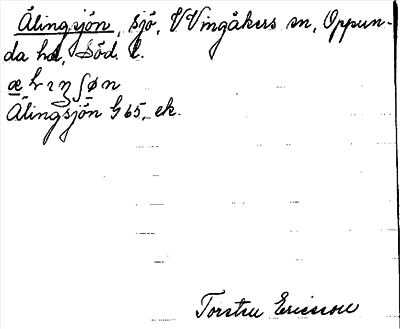 Ålingsjön, sjö, V Vingåkers sn, Oppun-
da hd, Söd. l.
Ålingsjön G 65, ek.
Torsten Ericsson